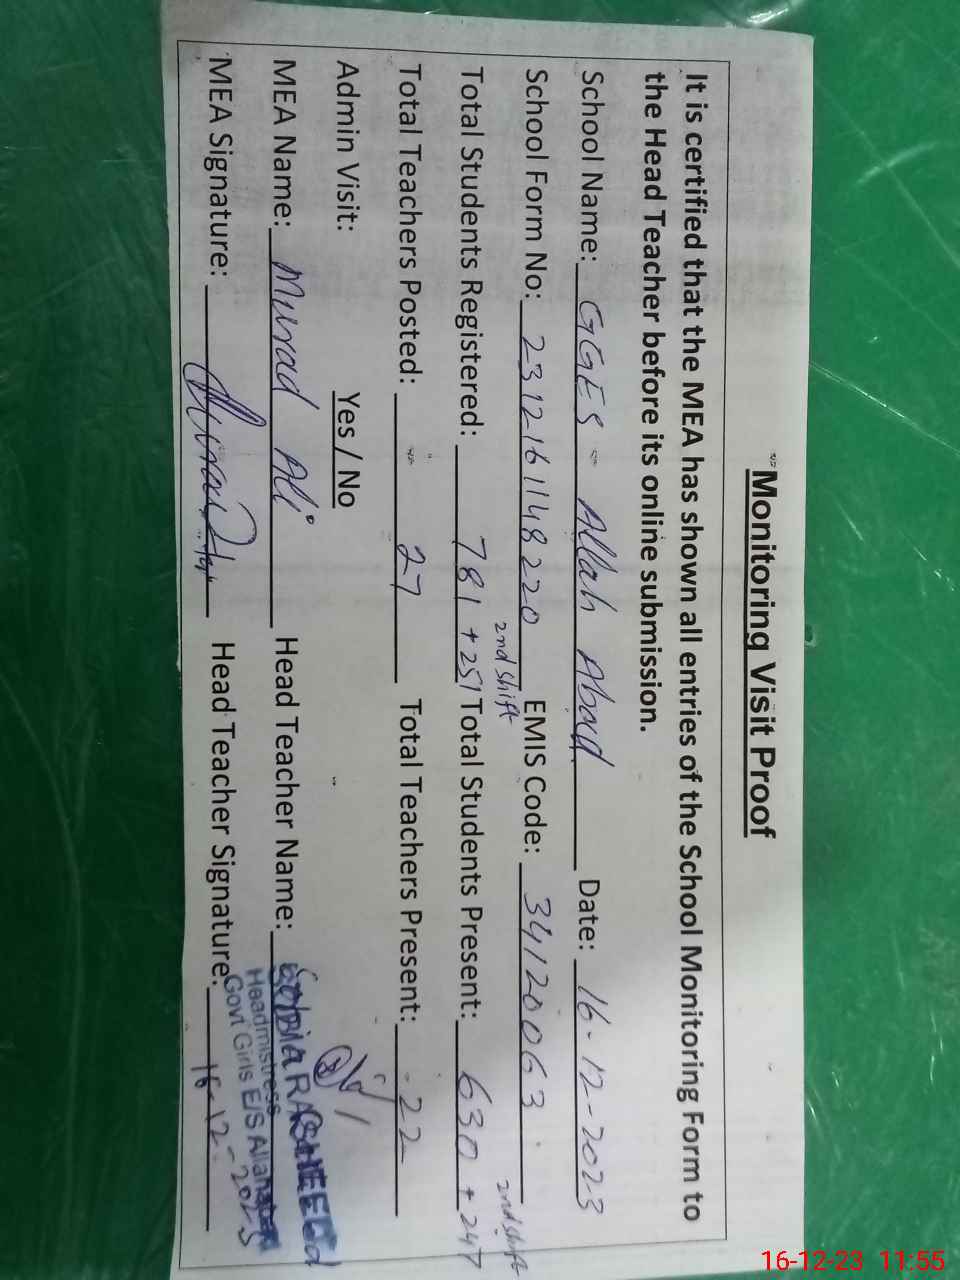 Monitoring Visit Proof
It is certified that the MEA has shown all entries of the School Monitoring Form to
the Head Teacher before its online submission.
School Name: GGES - Allah Abad Date: 16-12-2023
School Form No: 2312161148220 EMIS Code: 34120063
2nd shift 2nd shift
Total Students Registered: 781 + 251 Total Students Present: 630 + 247
Total Teachers Posted: 27 Total Teachers Present: 22
Admin Visit: Yes / No
MEA Name: Murad Ali Head Teacher Name: SOBIA RASHEED
Headmistress
Govt Girls E/S
MEA Signature: Head Teacher Signature: 16-12-2023
16-12-23 11:55